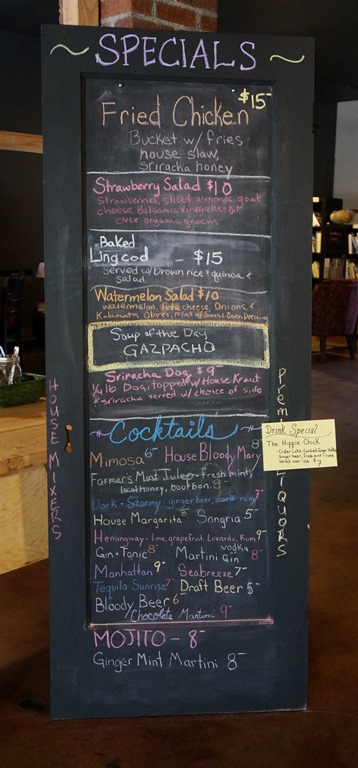 SPECIALS
$15
Fried Chicken
Bucket w/ fries
house slaw,
sriracha honey
Strawberry Salad $10
Strawberries, sliced almonds, goat
cheese, Balsamic Vinegrette
over organic greens
Baked
Lingcod - $15
Served w/ brown rice & quinoa &
salad
Watermelon Salad $10
watermelon, feta cheese, Onions, &
Kalamata Olives, mint w/
Soup of the Day
GAZPACHO
Sriracha Dog $9
1/4 lb Dog, topped w/ House Kraut
& sriracha served w/ choice of side
Cocktails
Mimosa 6-
House Bloody Mary 8-
Farmers Mint Julep - fresh mint,
local honey, bourbon 9-
Dark & Stormy - ginger beer, dark rum 7
House Margarita
Sangria 5-
Hemingway - lime, grapefruit, Luxardo, Rum 9-
Gin & Tonic 8-
Martini vodka Gin 8-
Manhattan 9-
Seabreeze 7-
Tequila Sunrise 7-
Draft Beer 5-
Bloody Beer 6-
Chocolate Martini 9-
MOJITO - 8-
Ginger Mint Martini 8-
HOUSE MIXERS
LIQUORS
Drink Special
The Hippie Chick
ginger beer, fresh mint & lime
served over ice